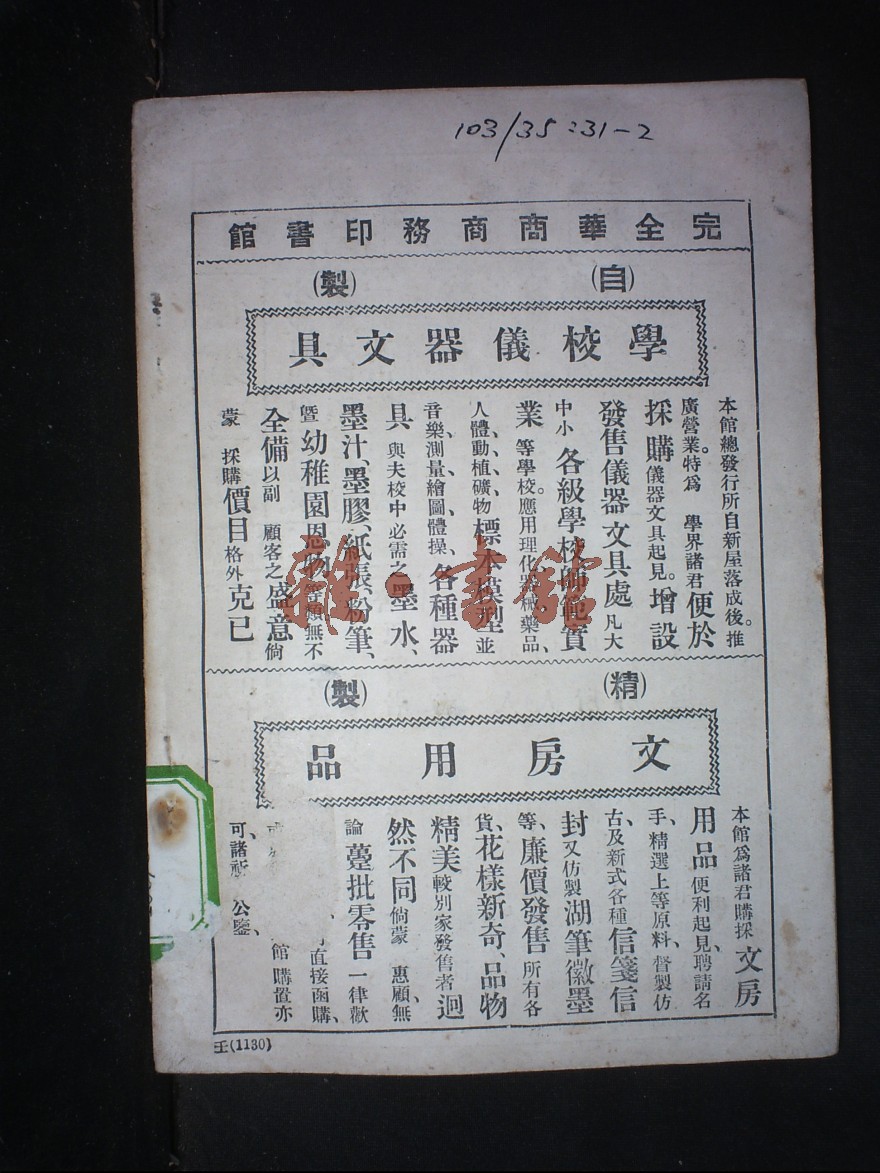 103/35:31-2
完全華商商務印書館
(自)(製)
學校儀器文具
本館總發行所自新屋落成後。推
廣營業。特為 學界諸君便於
採購儀器文具起見。增設
發售儀器文具處凡大
中小各級學校師範實
業等學校。應用理化器械、藥品、
人體、動、植、礦物標本模型並
音樂、測量、繪圖、體操、各種器
具與夫校中必需之墨水、
墨汁、墨膠、紙張、粉筆、
暨幼稚園恩物等類無不
全備以副 顧客之盛意倘
蒙 採購價目格外克已
(精)(製)
文房用品
本館為諸君購採文房
用品便利起見聘請名
手、精選上等原料、督製仿
古及新式各種信箋信
封又仿製湖筆徽墨
等、廉價發售所有各
貨、花樣新奇、品物
精美較別家發售者迥
然不同倘蒙 惠顧、無
論躉批零售一律歡
直接函購、
館購置亦
可、諸祈 公鑒、
壬(1130)
雜·書館